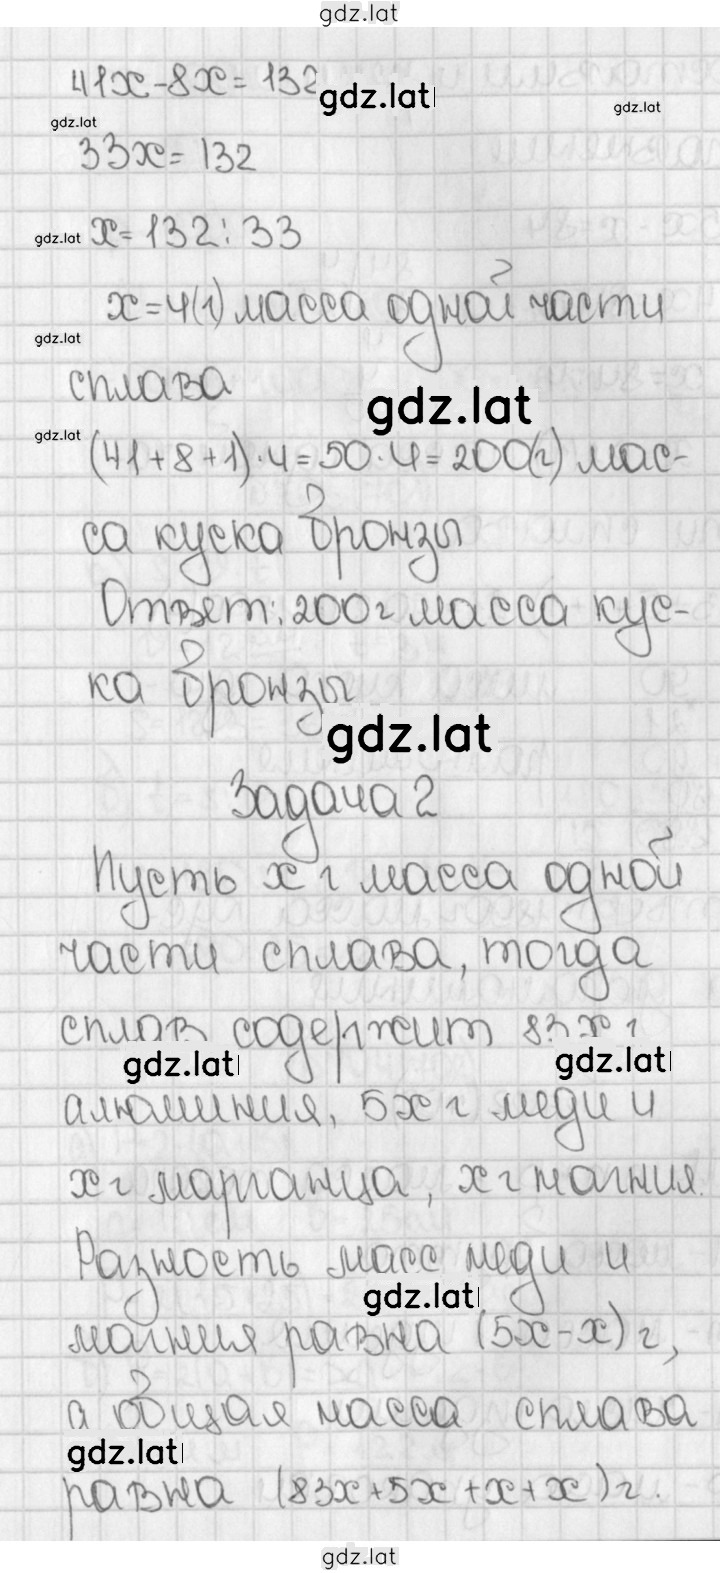 gdz.lat
41x-8x=132
gdz.lat
gdz.lat
gdz.lat
33x=132
gdz.lat
x=132:33
x=4(г) масса одной части
gdz.lat
сплава
gdz.lat
gdz.lat
(41+8+1)·4=50·4=200(г) мас-
са куска бронзы
Ответ: 200 г масса кус-
ка бронзы
gdz.lat
Задача 2
Пусть x г масса одной
части сплава, тогда
сплав содержит 83x г
gdz.lat
gdz.lat
алюминия, 5x г меди и
x г марганца, x г магния.
Разность масс меди и
gdz.lat
магния равна (5x-x) г,
а общая масса сплава
gdz.lat
равна (83x+5x+x+x) г.
gdz.lat